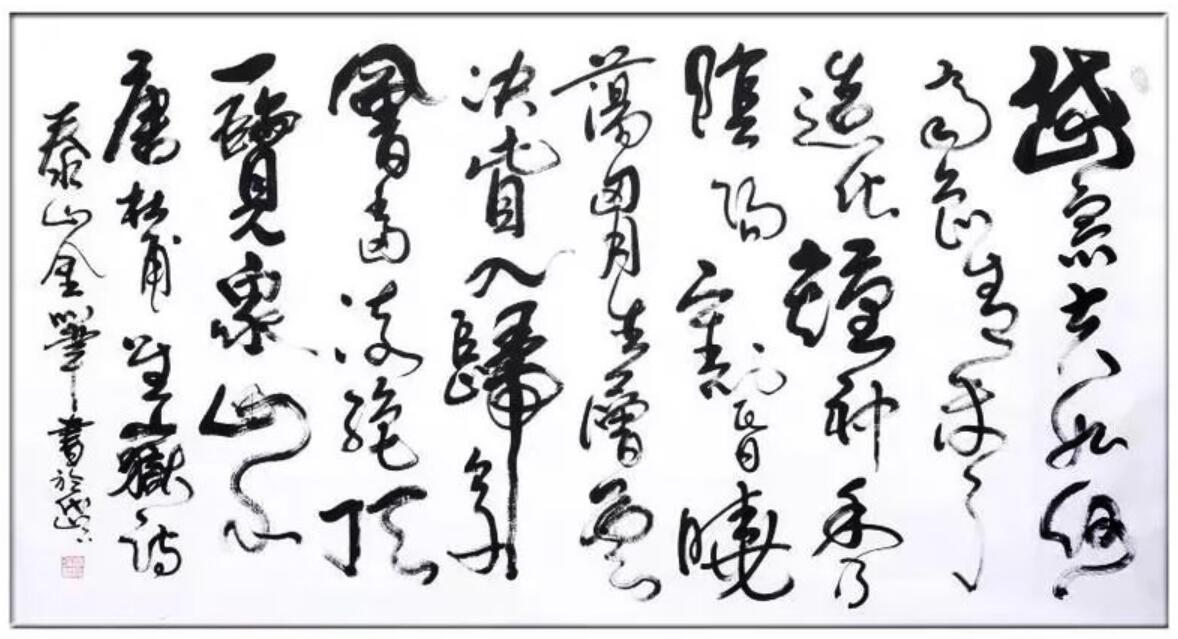 岱宗夫如何
齊魯青未了
造化鍾神秀
陰陽割昏曉
蕩胸生層雲
决眥入歸鳥
會當凌絶頂
一覽衆山小
唐杜甫望嶽詩
泰山金筆書於岱下